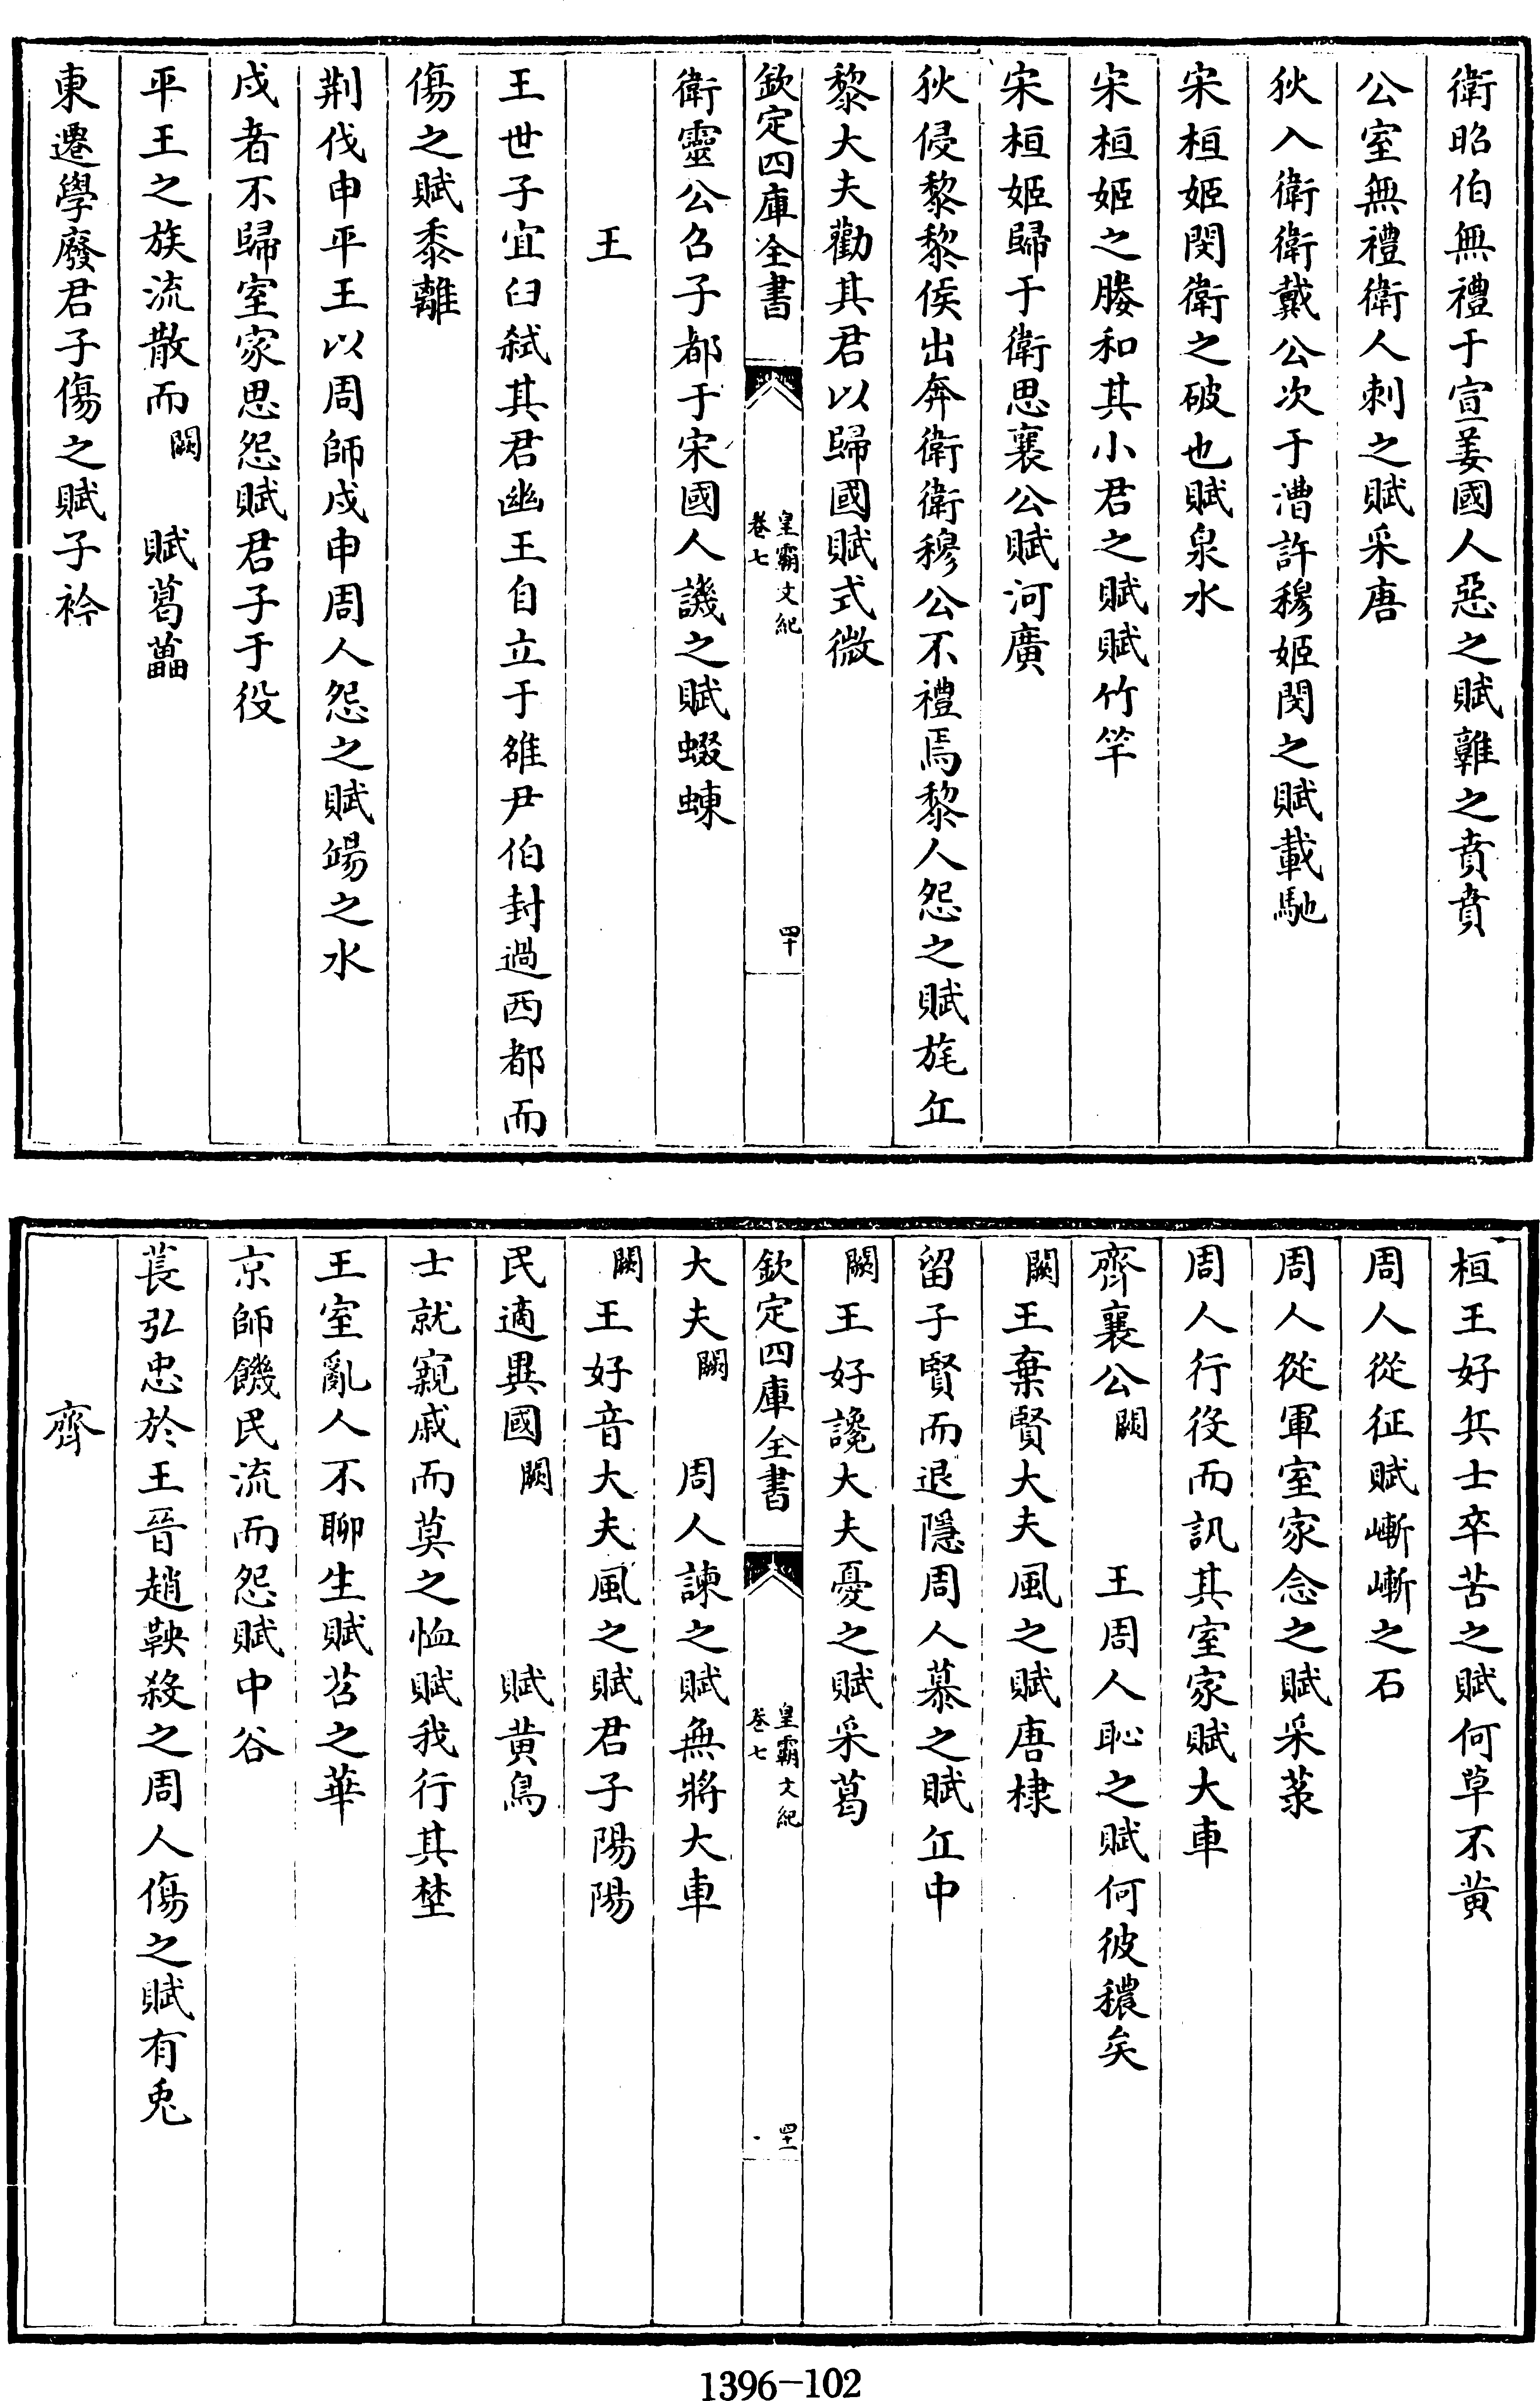 衛昭伯無禮于宣姜國人惡之賦鶉之賁賁
公室無禮衛人刺之賦采唐
狄入衛衛戴公次于漕許穆姬閔之賦載馳
宋桓姬閔衛之破也賦泉水
宋桓姬之媵和其小君之賦賦竹竿
宋桓姬歸于衛思襄公賦河廣
狄侵黎黎侯出奔衛衛穆公不禮焉黎人怨之賦旄丘
黎大夫勸其君以歸國賦式微
欽定四庫全書
皇霸文紀
卷七
四十
衛靈公名子都于宋國人譏之賦蝃蝀
王
王世子宜臼弒其君幽王自立于雒尹伯封過西都而
傷之賦黍離
荆伐申平王以周師戍申周人怨之賦煬之水
戍者不歸室家思怨賦君子于役
平王之族流散而闕 賦葛藟
東遷學廢君子傷之賦子衿
桓王好兵士卒苦之賦何草不黄
周人從征賦嶄嶄之石
周人從軍室家念之賦采菉
周人行役而訊其室家賦大車
齊襄公闕 王周人恥之賦何彼穠矣
闕王棄賢大夫風之賦唐棣
留子賢而退隱周人慕之賦丘中
闕王好讒大夫憂之賦采葛
欽定四庫全書
皇霸文紀
卷七
四十一
大夫闕 周人諫之賦無將大車
闕王好音大夫風之賦君子陽陽
民適異國闕 賦黄鳥
士就窺戚而莫之恤賦我行其埜
王室亂人不聊生賦苕之華
京師饑民流而怨賦中谷
萇弘忠於王晉趙鞅殺之周人傷之賦有兎
齊
1396-102